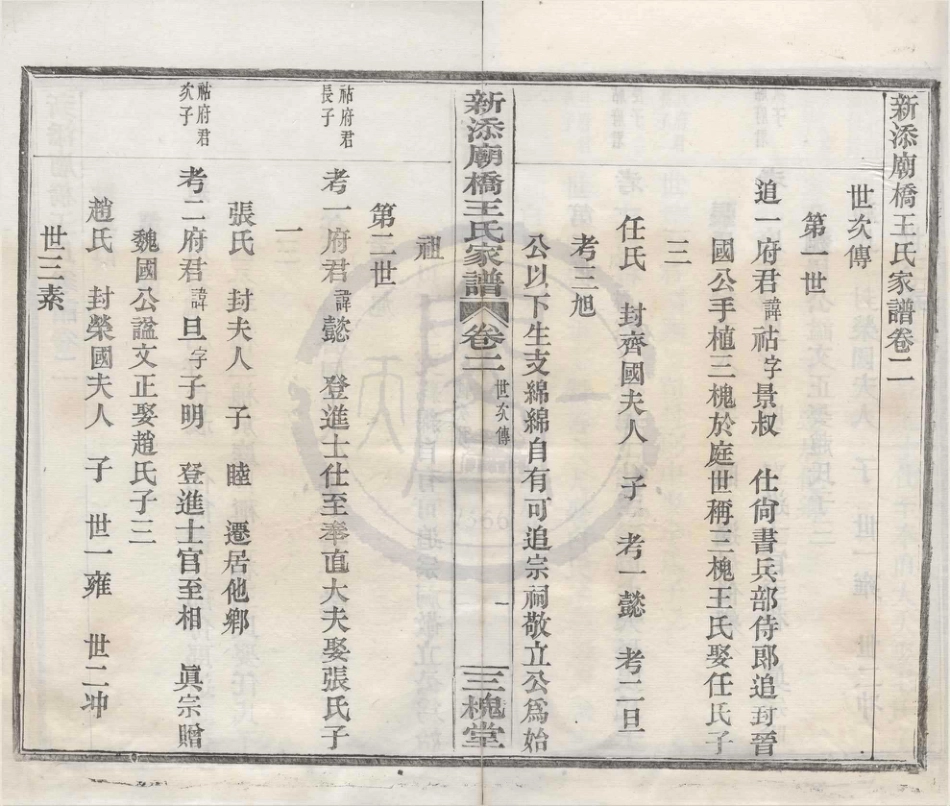 新添廟橋王氏家譜卷二
世次傳
第一世
追一府君諱祜字景叔 仕尙書兵部侍郎追封晉
國公手植三槐於庭世稱三槐王氏娶任氏子
三
任氏 封齊國夫人 子 考一懿 考二旦
考三旭
公以下生支綿綿自有可追宗祠敬立公爲始
祖
新添廟橋王氏家譜 卷二 世次傳 一 三槐堂
第二世
祜府君長子
考一府君諱懿 登進士仕至奉直大夫娶張氏子
一
張氏 封夫人 子 睦 遷居他鄉
祜府君次子
考二府君諱旦字子明 登進士官至相 眞宗贈
魏國公諡文正娶趙氏子三
趙氏 封榮國夫人 子 世一雍 世二冲
世三素